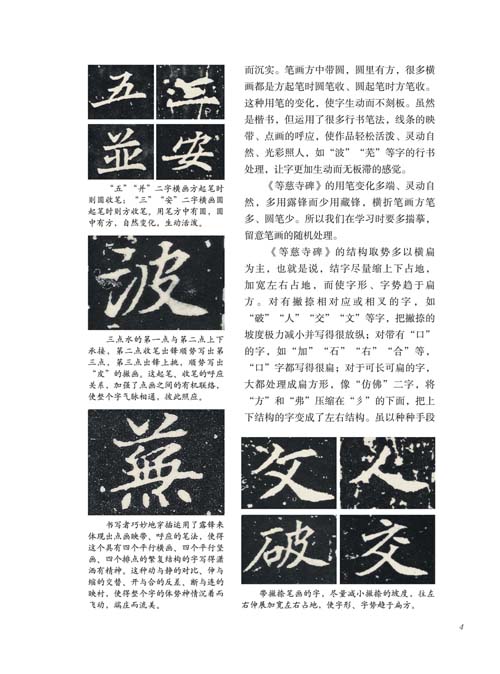 五
三
並
安
“五”“并”二字横画方起笔时
则圆收笔；“三”“安”二字横画圆
起笔时则方收笔。用笔方中有圆，圆
中有方，自然变化，生动活泼。
波
三点水的第一点与第二点上下
承接，第二点收笔出锋顺势写出第
三点，第三点出锋上挑，顺势写出
“皮”的撇画。这起笔、收笔的呼应
关系，加强了点画之间的有机联络，
使整个字气脉相通，彼此照应。
蕪
书写者巧妙地穿插运用了露锋来
体现出点画映带、呼应的笔法，使得
这个具有四个平行横画、四个平行竖
画、四个排点的繁复结构的字写得潇
洒有精神。这种动与静的对比、伸与
缩的交替、开与合的反差、断与连的
映衬，使得整个字的体势神情沉着而
飞动，端庄而流美。
而沉实。笔画方中带圆，圆里有方，很多横
画都是方起笔时圆笔收、圆起笔时方笔收。
这种用笔的变化，使字生动而不刻板。虽然
是楷书，但运用了很多行书笔法，线条的映
带、点画的呼应，使作品轻松活泼、灵动自
然、光彩照人，如“波”“芜”等字的行书
处理，让字更加生动而无板滞的感觉。
《等慈寺碑》的用笔变化多端、灵动自
然，多用露锋而少用藏锋，横折笔画方笔
多、圆笔少。所以我们在学习时要多揣摹，
留意笔画的随机处理。
《等慈寺碑》的结构取势多以横扁
为主，也就是说，结字尽量缩上下占地，
加宽左右占地，而使字形、字势趋于扁
方。对有撇捺相对应或相叉的字，如
“破”“人”“交”“文”等字，把撇捺的
坡度极力减小并写得很放纵；对带有“口”
的字，如“加”“石”“右”“合”等，
“口”字都写得很扁；对于可长可扁的字，
大都处理成扁方形，像“仿佛”二字，将
“方”和“弗”压缩在“彡”的下面，把上
下结构的字变成了左右结构。虽以种种手段
文
人
破
交
带撇捺笔画的字，尽量减小撇捺的坡度，往左
右伸展加宽左右占地，使字形、字势趋于扁方。
4